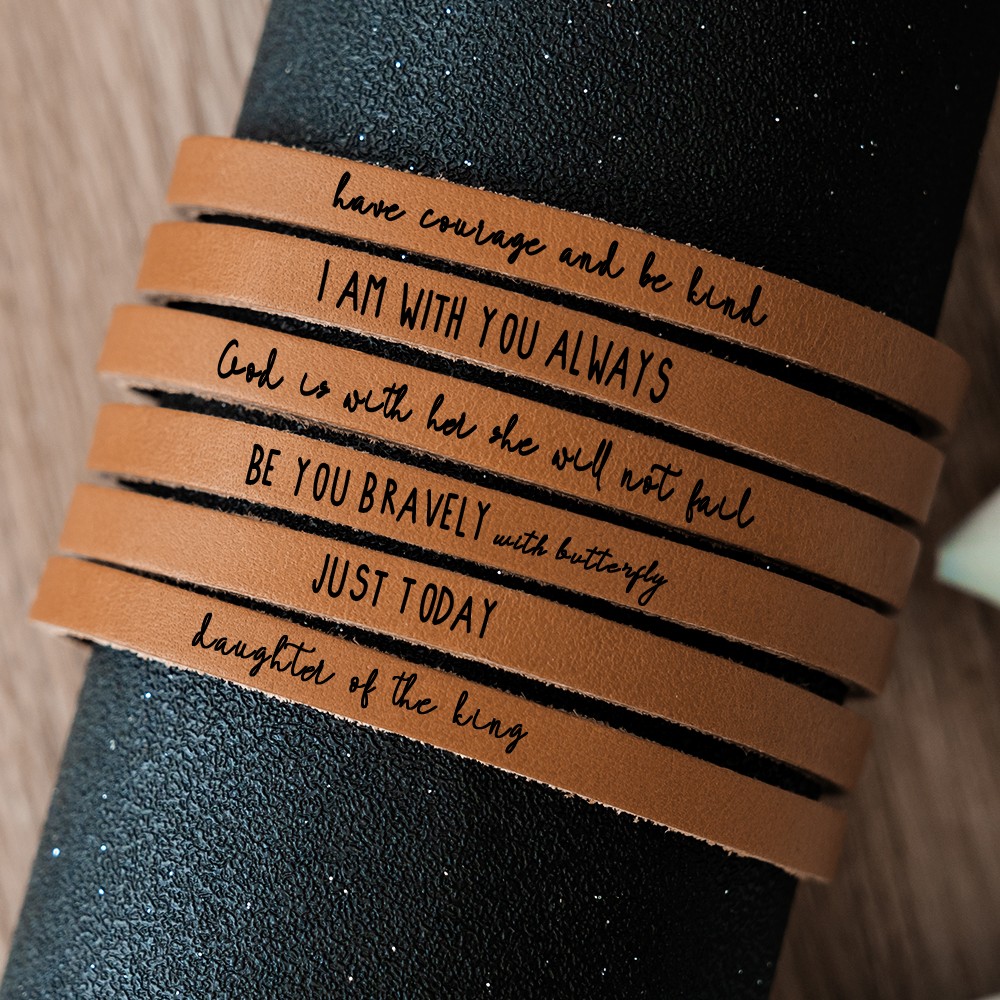 have courage and be kind
I AM WITH YOU ALWAYS
God is with her she will not fail
BE YOU BRAVELY with butterfly
JUST TODAY
daughter of the king